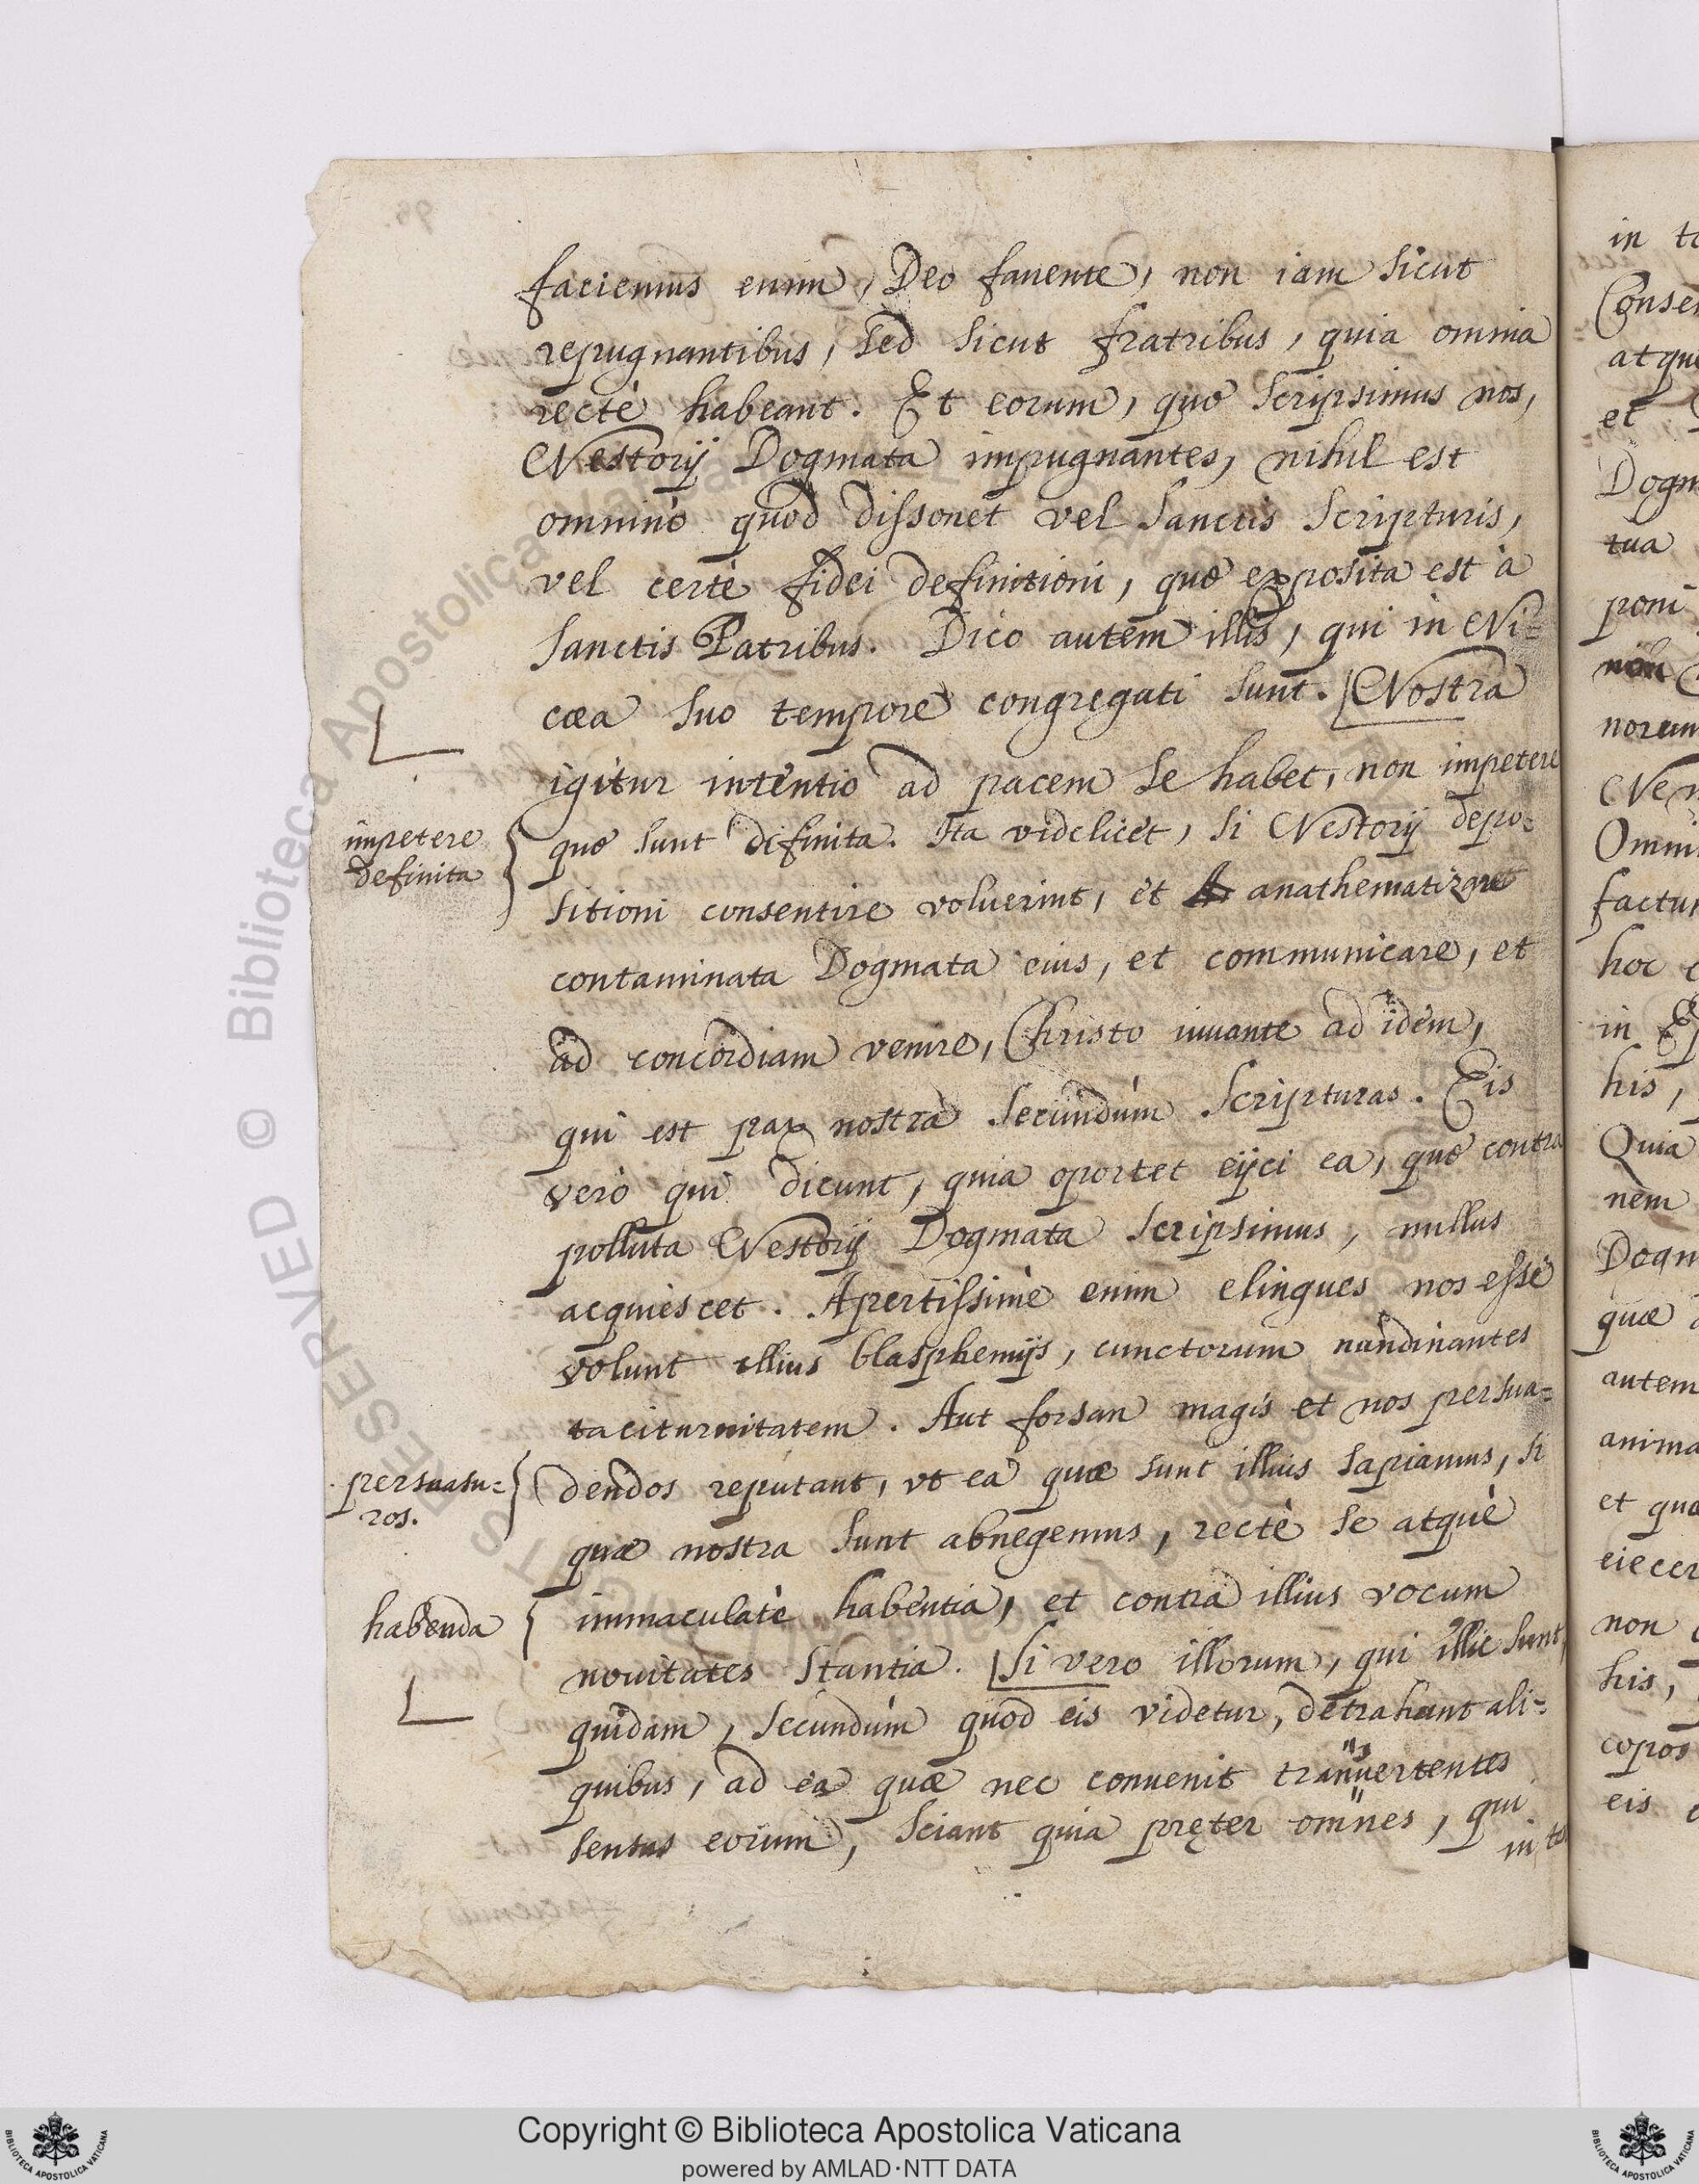 faciemus enim, Deo fauente, non iam sicut
repugnantibus, sed sicut fratribus, quia omnia
rectè habeant. Et eorum, quę scripsimus nos,
Nestorij Dogmata impugnantes, nihil est
omninò quod dissonet vel Sanctis Scripturis,
vel certè fidei definitioni, quę exposita est à
Sanctis Patribus. Dico autem illis, qui in Ni=
cæa suo tempore congregati sunt. [Nostra
igitur intentio ad pacem se habet, non impetere
impetere
definita
quę sunt definita. Ita videlicet, si Nestorij depo=
sitioni consentire voluerint, et anathematizare
contaminata Dogmata eius, et communicare, et
ad concordiam venire, Christo iuuante ad idem,
qui est pax nostra secundùm Scripturas. Eis
verò qui dicunt, quia oportet eijci ea, quę contra
polluta Nestorij Dogmata scripsimus, nullus
acquiescet. Apertissimè enim elingues nos esse
volunt illius blasphemijs, cunctorum nundinantes
taciturnitatem. Aut forsan magis et nos persua=
persuasu=
ros.
dendos reputant, vt ea quæ sunt illius sapiamus, si
quæ nostra sunt abnegemus, rectè se atquè
habenda
immaculatè habentia, et contra illius vocum
nouitates stantia. [Si vero illorum, qui illic sunt,
quidam, secundùm quod eis videtur, detrahunt ali=
quibus, ad ea quæ nec conuenit transuertentes
sensus eorum, sciant quia pręter omnes, qui
in to
in to
Conse
atque
et
Dogm
tua
poni
norum
Ne
Omni
factu
hoc
in Ep
his,
Quia
nem
Dogm
quæ
autem
anima
et quæ
eiecer
non
his,
copos
eis
Copyright © Biblioteca Apostolica Vaticana
powered by AMLAD·NTT DATA